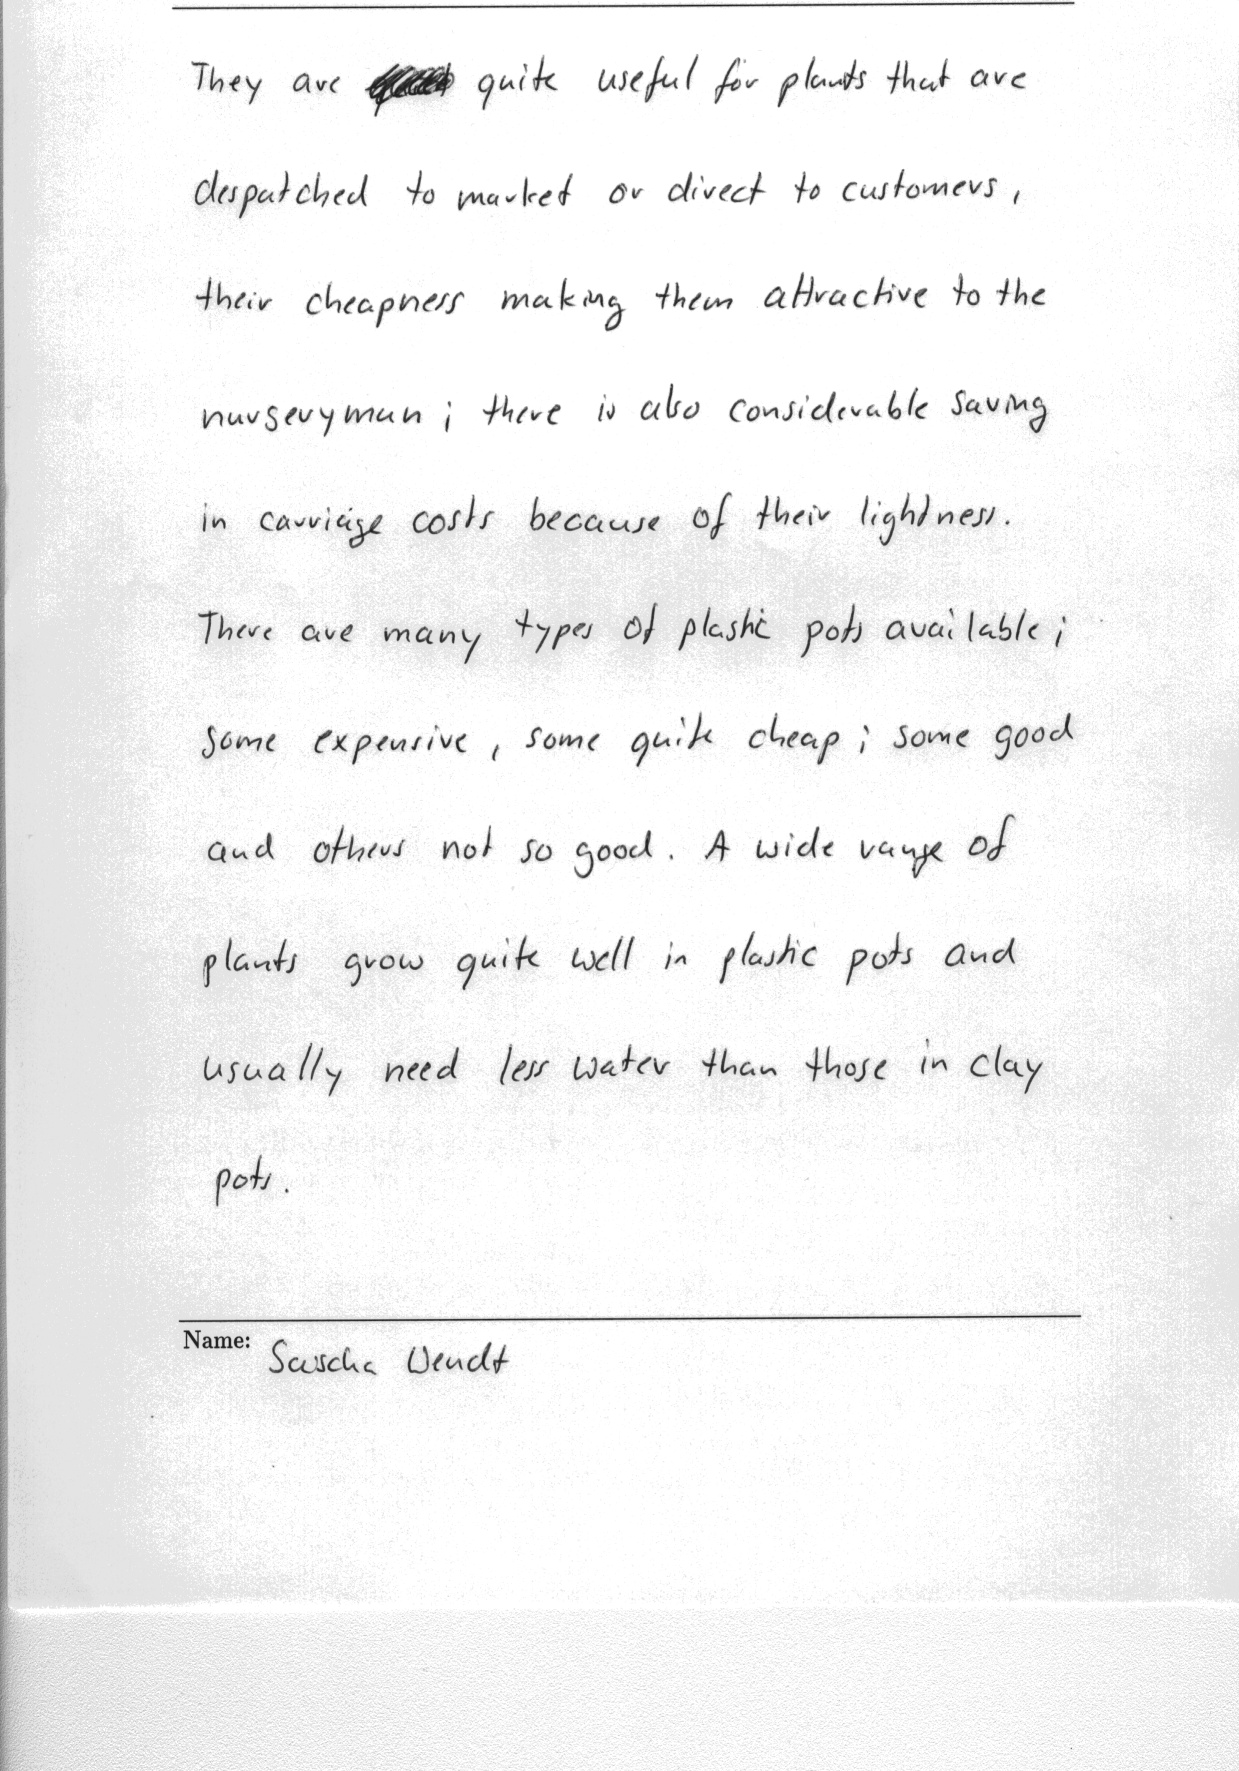 They are quite useful for plants that are
despatched to market or direct to customers,
their cheapness making them attractive to the
nurseryman; there is also considerable saving
in carriage costs because of their lightness.
There are many types of plastic pots available;
some expensive, some quite cheap; some good
and others not so good. A wide range of
plants grow quite well in plastic pots and
usually need less water than those in clay
pots.
Name: Sascha Wendt